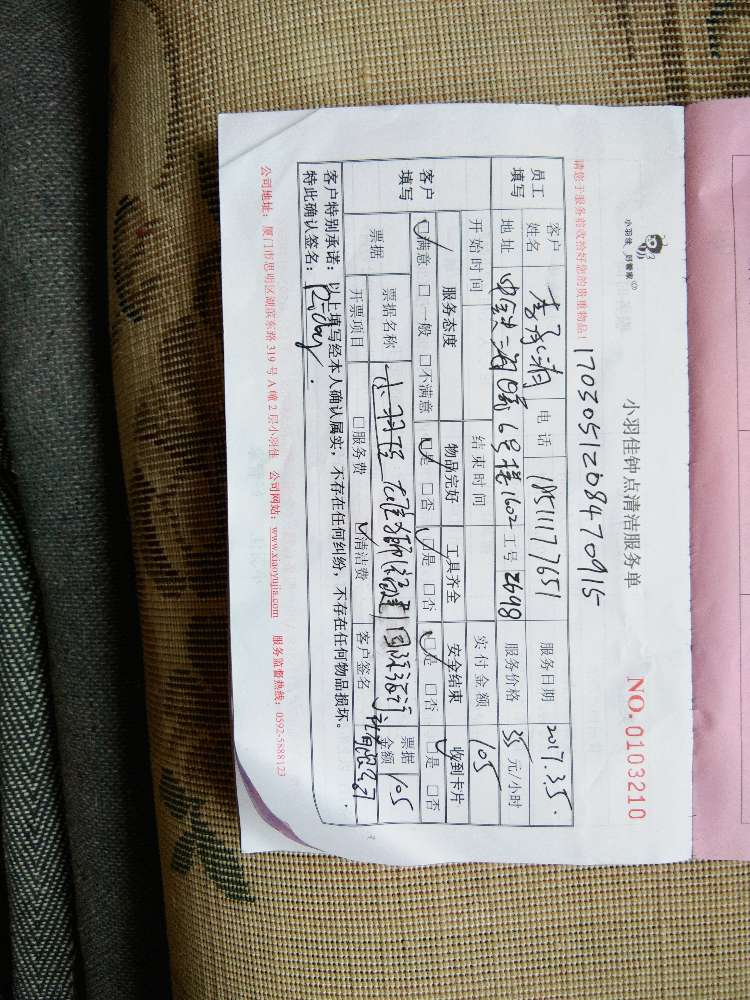 小羽佳 好管家
小羽佳钟点清洁服务单
NO.0103210
1703051208470915
请您于服务前收拾好您的贵重物品！
员工填写 客户姓名 电话 服务日期 2017.3.5.
地址 6号楼1602 工号 2698 服务价格 35 元/小时
开始时间 结束时间 实付金额 105
客户填写 服务态度 物品完好 工具齐全 安全结束 收到卡片
☑满意 □一般 □不满意 ☑是 □否 ☑是 □否 ☑是 □否 □是 □否
票据 票据名称 小羽佳 票据金额 105
开票项目 □服务费 ☑清洁费 客户签名
客户特别承诺：以上填写经本人确认属实，不存在任何纠纷，不存在任何物品损坏。
特此确认签名：
公司地址：厦门市思明区湖滨东路 319 号 A 幢 2 层小羽佳 公司网站：www.xiaoyujia.com 服务监督热线：0592-5888123